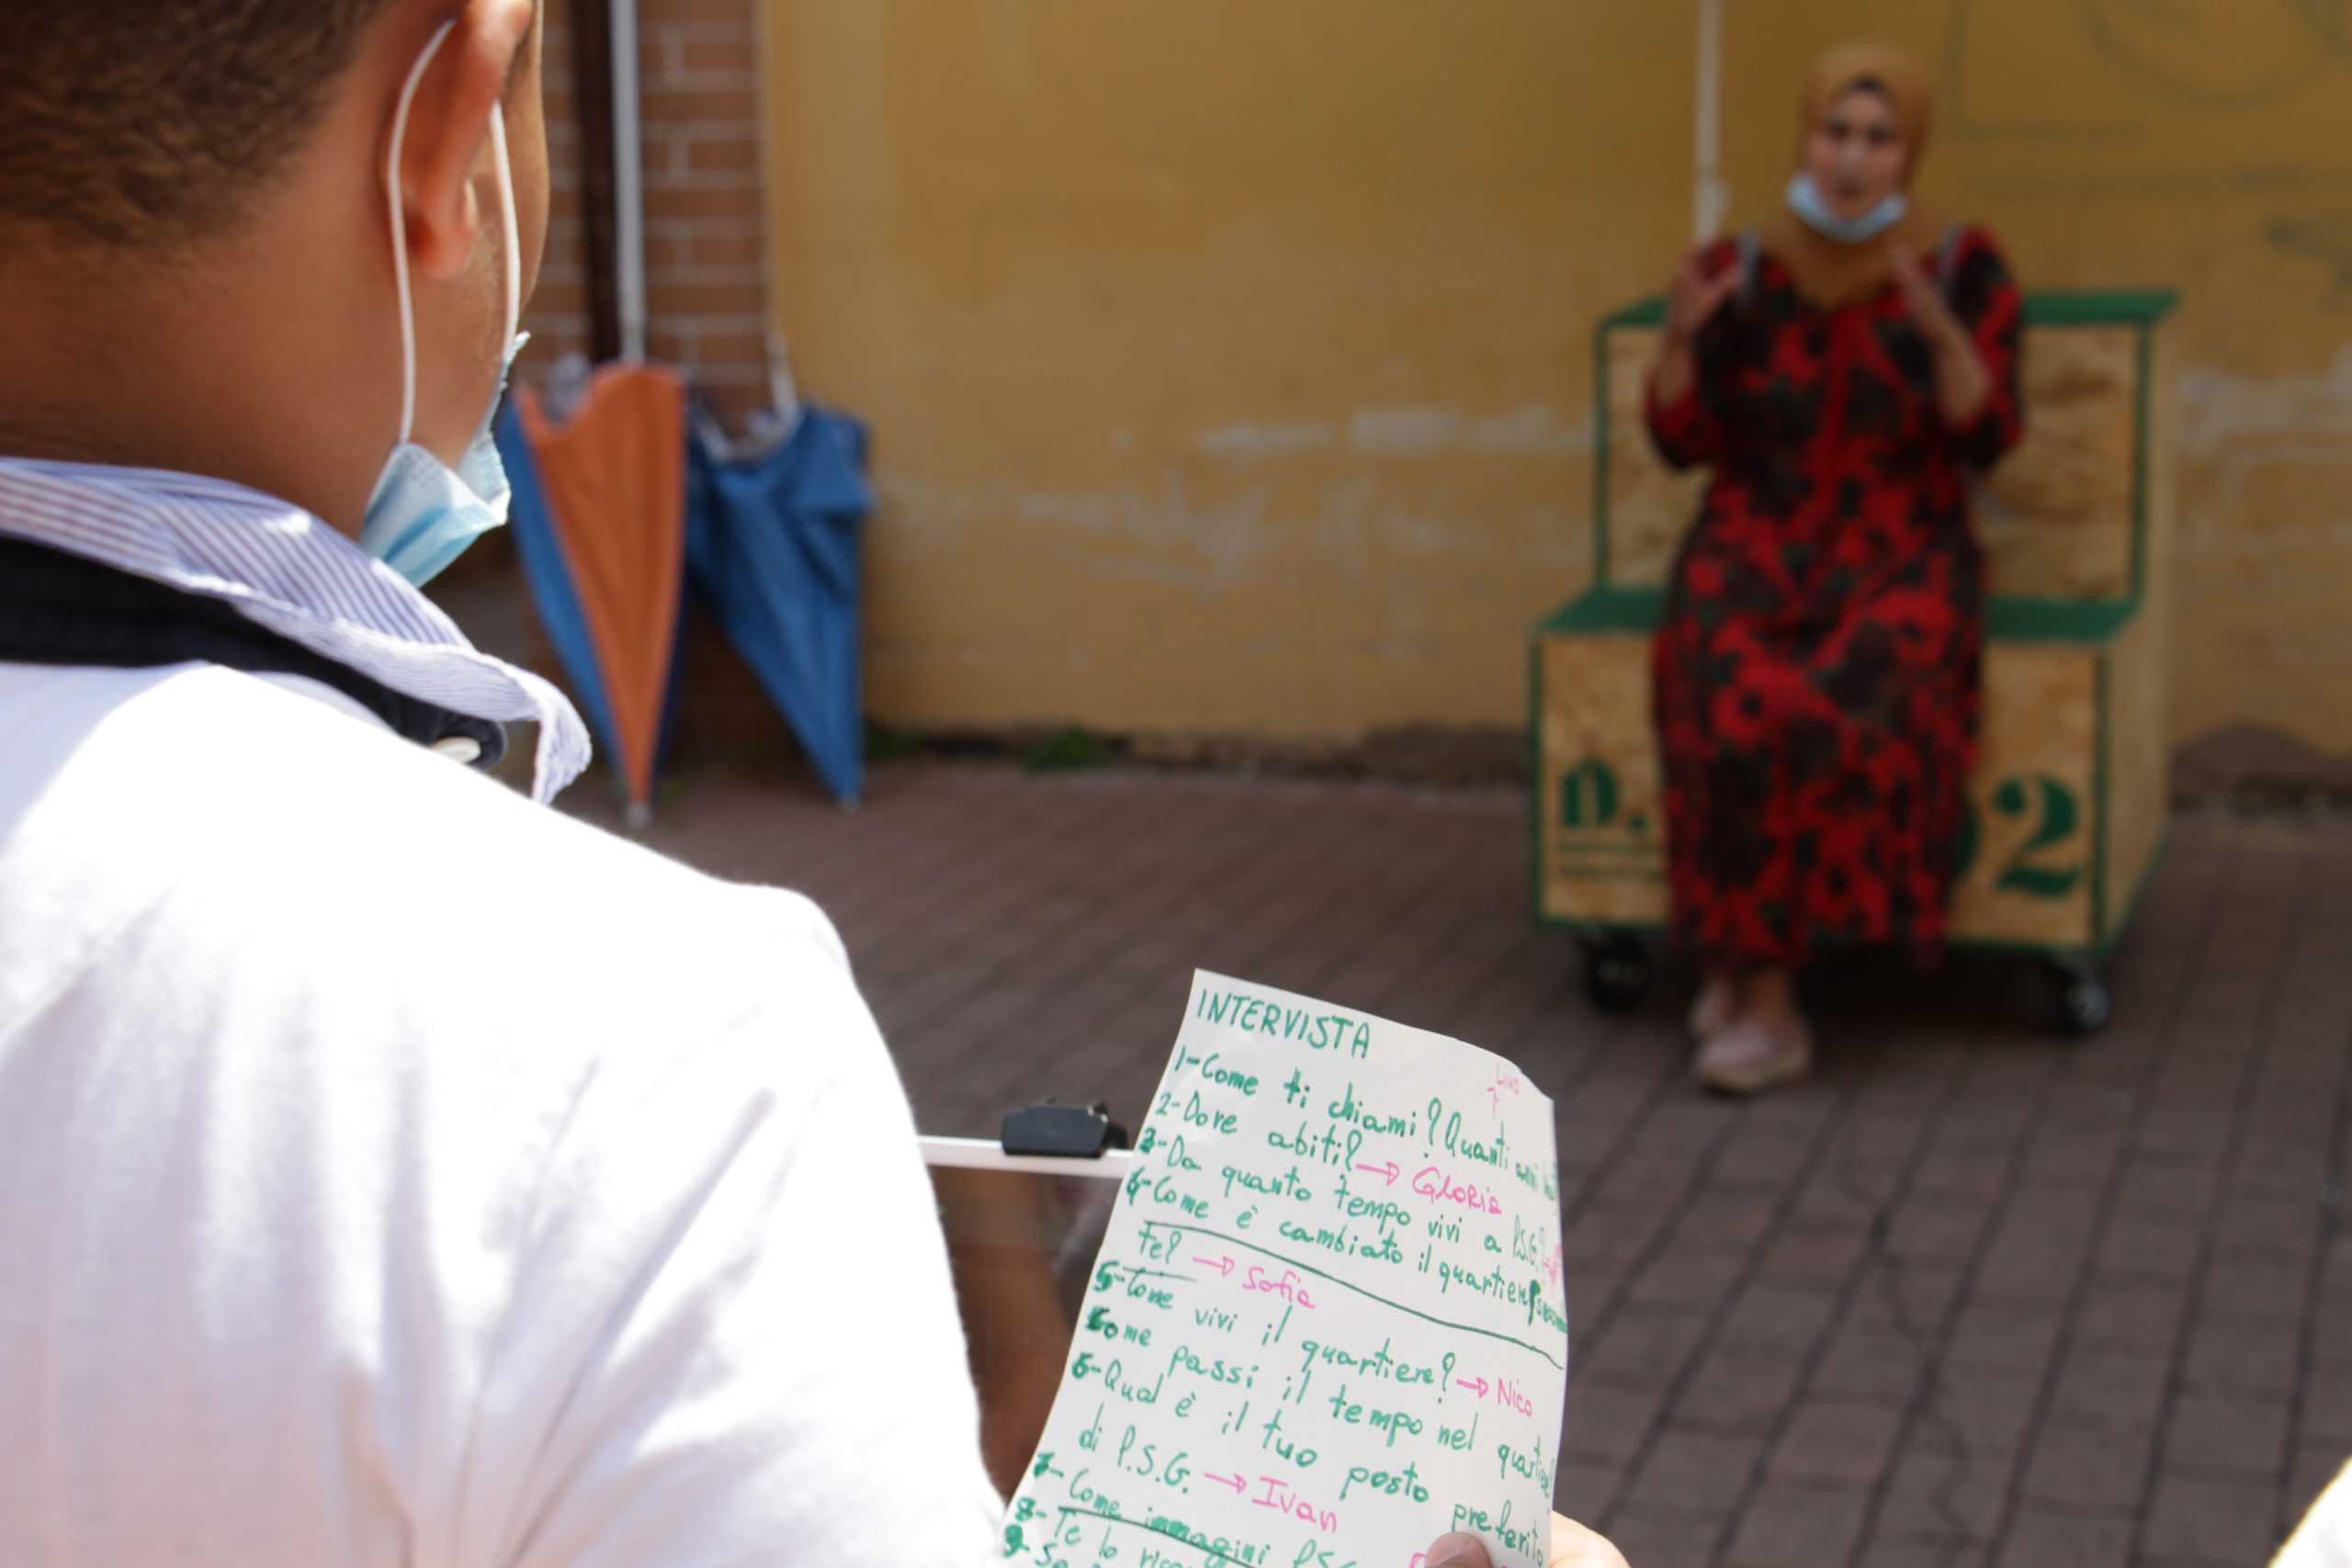 INTERVISTA
1-Come ti chiami? Quanti anni
2-Dove abiti? → GLORIA
3-Da quanto tempo vivi a P.S.G.?
4-Come è cambiato il quartiere
Te? → Sofia
5-Come vivi il quartiere? → Nico
Come passi il tempo nel quartiere
6-Qual è il tuo posto preferito
di P.S.G. → Ivan
7-Come immagini PSG
8-Te lo
9-
n.
2